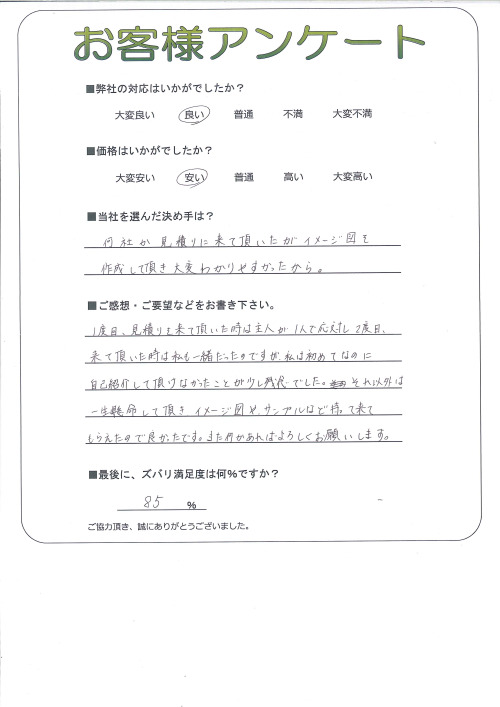 お客様アンケート
■弊社の対応はいかがでしたか？
大変良い　良い　普通　不満　大変不満
■価格はいかがでしたか？
大変安い　安い　普通　高い　大変高い
■当社を選んだ決め手は？
何社か見積りに来て頂いたがイメージ図を
作成して頂き大変わかりやすかったから。
■ご感想・ご要望などをお書き下さい。
1度目、見積りを来て頂いた時は主人が1人で応対し2度目、
来て頂いた時は私も一緒だったのですが私は初めてなのに
自己紹介して頂けなかったことが少し残念でした。それ以外は
一生懸命して頂きイメージ図や、サンプルなど持って来て
もらえたので良かったです。また何かあればよろしくお願いします。
■最後に、ズバリ満足度は何％ですか？
85 ％
ご協力頂き、誠にありがとうございました。